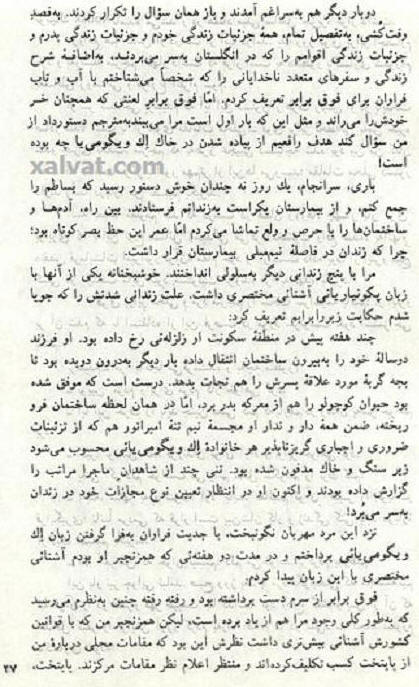 دو بار دیگر هم به‌سراغم آمدند و باز همان سؤال را تکرار کردند. به‌قصد
وقت‌کشی، به‌تفصیل تمام، همهٔ جزئیات زندگی خودم و جزئیات زندگی پدرم و
جزئیات زندگی اقوامم را که در انگلستان به‌سر می‌بردند، به‌اضافهٔ شرح
زندگی و سفرهای متعدد ناخدایانی را که شخصاً می‌شناختم با آب و تاب
فراوان برای فوق برابر تعریف کردم. امّا فوق برابر لعنتی که همچنان خر
خودش‌را می‌راند و مثل این که بار اول است مرا می‌بیند به‌مترجم دستورداد از
من سؤال کند هدف واقعیم از پیاده شدن در خاك إلك و یگومی‌یا چه بوده
است!
xalvat.com
باری، سرانجام، یك روز نه چندان خوش دستور رسید که بساطم را
جمع کنم، و از بیمارستان یکراست به‌زندانم فرستادند. بین راه، آدم‌ها و
ساختمان‌ها را با حرص و ولع تماشا می‌کردم امّا عمر این حظ بصر کوتاه بود؛
چرا که زندان در فاصلهٔ نیم‌میلی بیمارستان قرار داشت.
مرا با پنج زندانی دیگر به‌سلولی انداختند. خوشبختانه یکی از آنها با
زبان پکونتیاریانی آشنائی مختصری داشت. علت زندانی شدنش را که جویا
شدم حکایت زیررا برایم تعریف کرد:
چند هفته پیش در منطقهٔ سکونت او زلزله‌ئی رخ داده بود. او فرزند
دوسالهٔ خود را به‌بیرون ساختمان انتقال داده بار دیگر به‌درون دویده بود تا
بچه گربهٔ مورد علاقهٔ پسرش را هم نجات بدهد. درست است که موفق شده
بود حیوان کوچولو را هم از معرکه بدر برد، امّا در همان لحظه ساختمان فرو
ریخته، ضمن همهٔ دار و ندار او مجسمهٔ نیم تنهٔ امپراتور هم که از تزئینات
ضروری و اجباری گریزناپذیر هر خانوادهٔ إلك و یگومی‌یائی محسوب می‌شود
زیر سنگ و خاك مدفون شده بود. تنی چند از شاهدان ماجرا مراتب را
گزارش داده بودند و اکنون او در انتظار تعیین نوع مجازات خود در زندان
به‌سر می‌برد!
نزد این مرد مهربان نگونبخت، با جدیت فراوان به‌فرا گرفتن زبان إلك
و یگومی‌یائی پرداختم و در مدت دو هفته‌ئی که همزنجیر او بودم آشنائی
مختصری با این زبان پیدا کردم.
فوق برابر از سرم دست برداشته بود و رفته رفته چنین به‌نظرم می‌رسید
که به‌طور کلی وجود مرا هم از یاد برده است، لیکن همزنجیر من که با قوانین
کشورش آشنائی بیش‌تری داشت نظرش این بود که مقامات محلی دربارهٔ من
از پایتخت کسب تکلیف‌کرده‌اند و منتظر اعلام نظر مقامات مرکزند. پایتخت،
۲۷